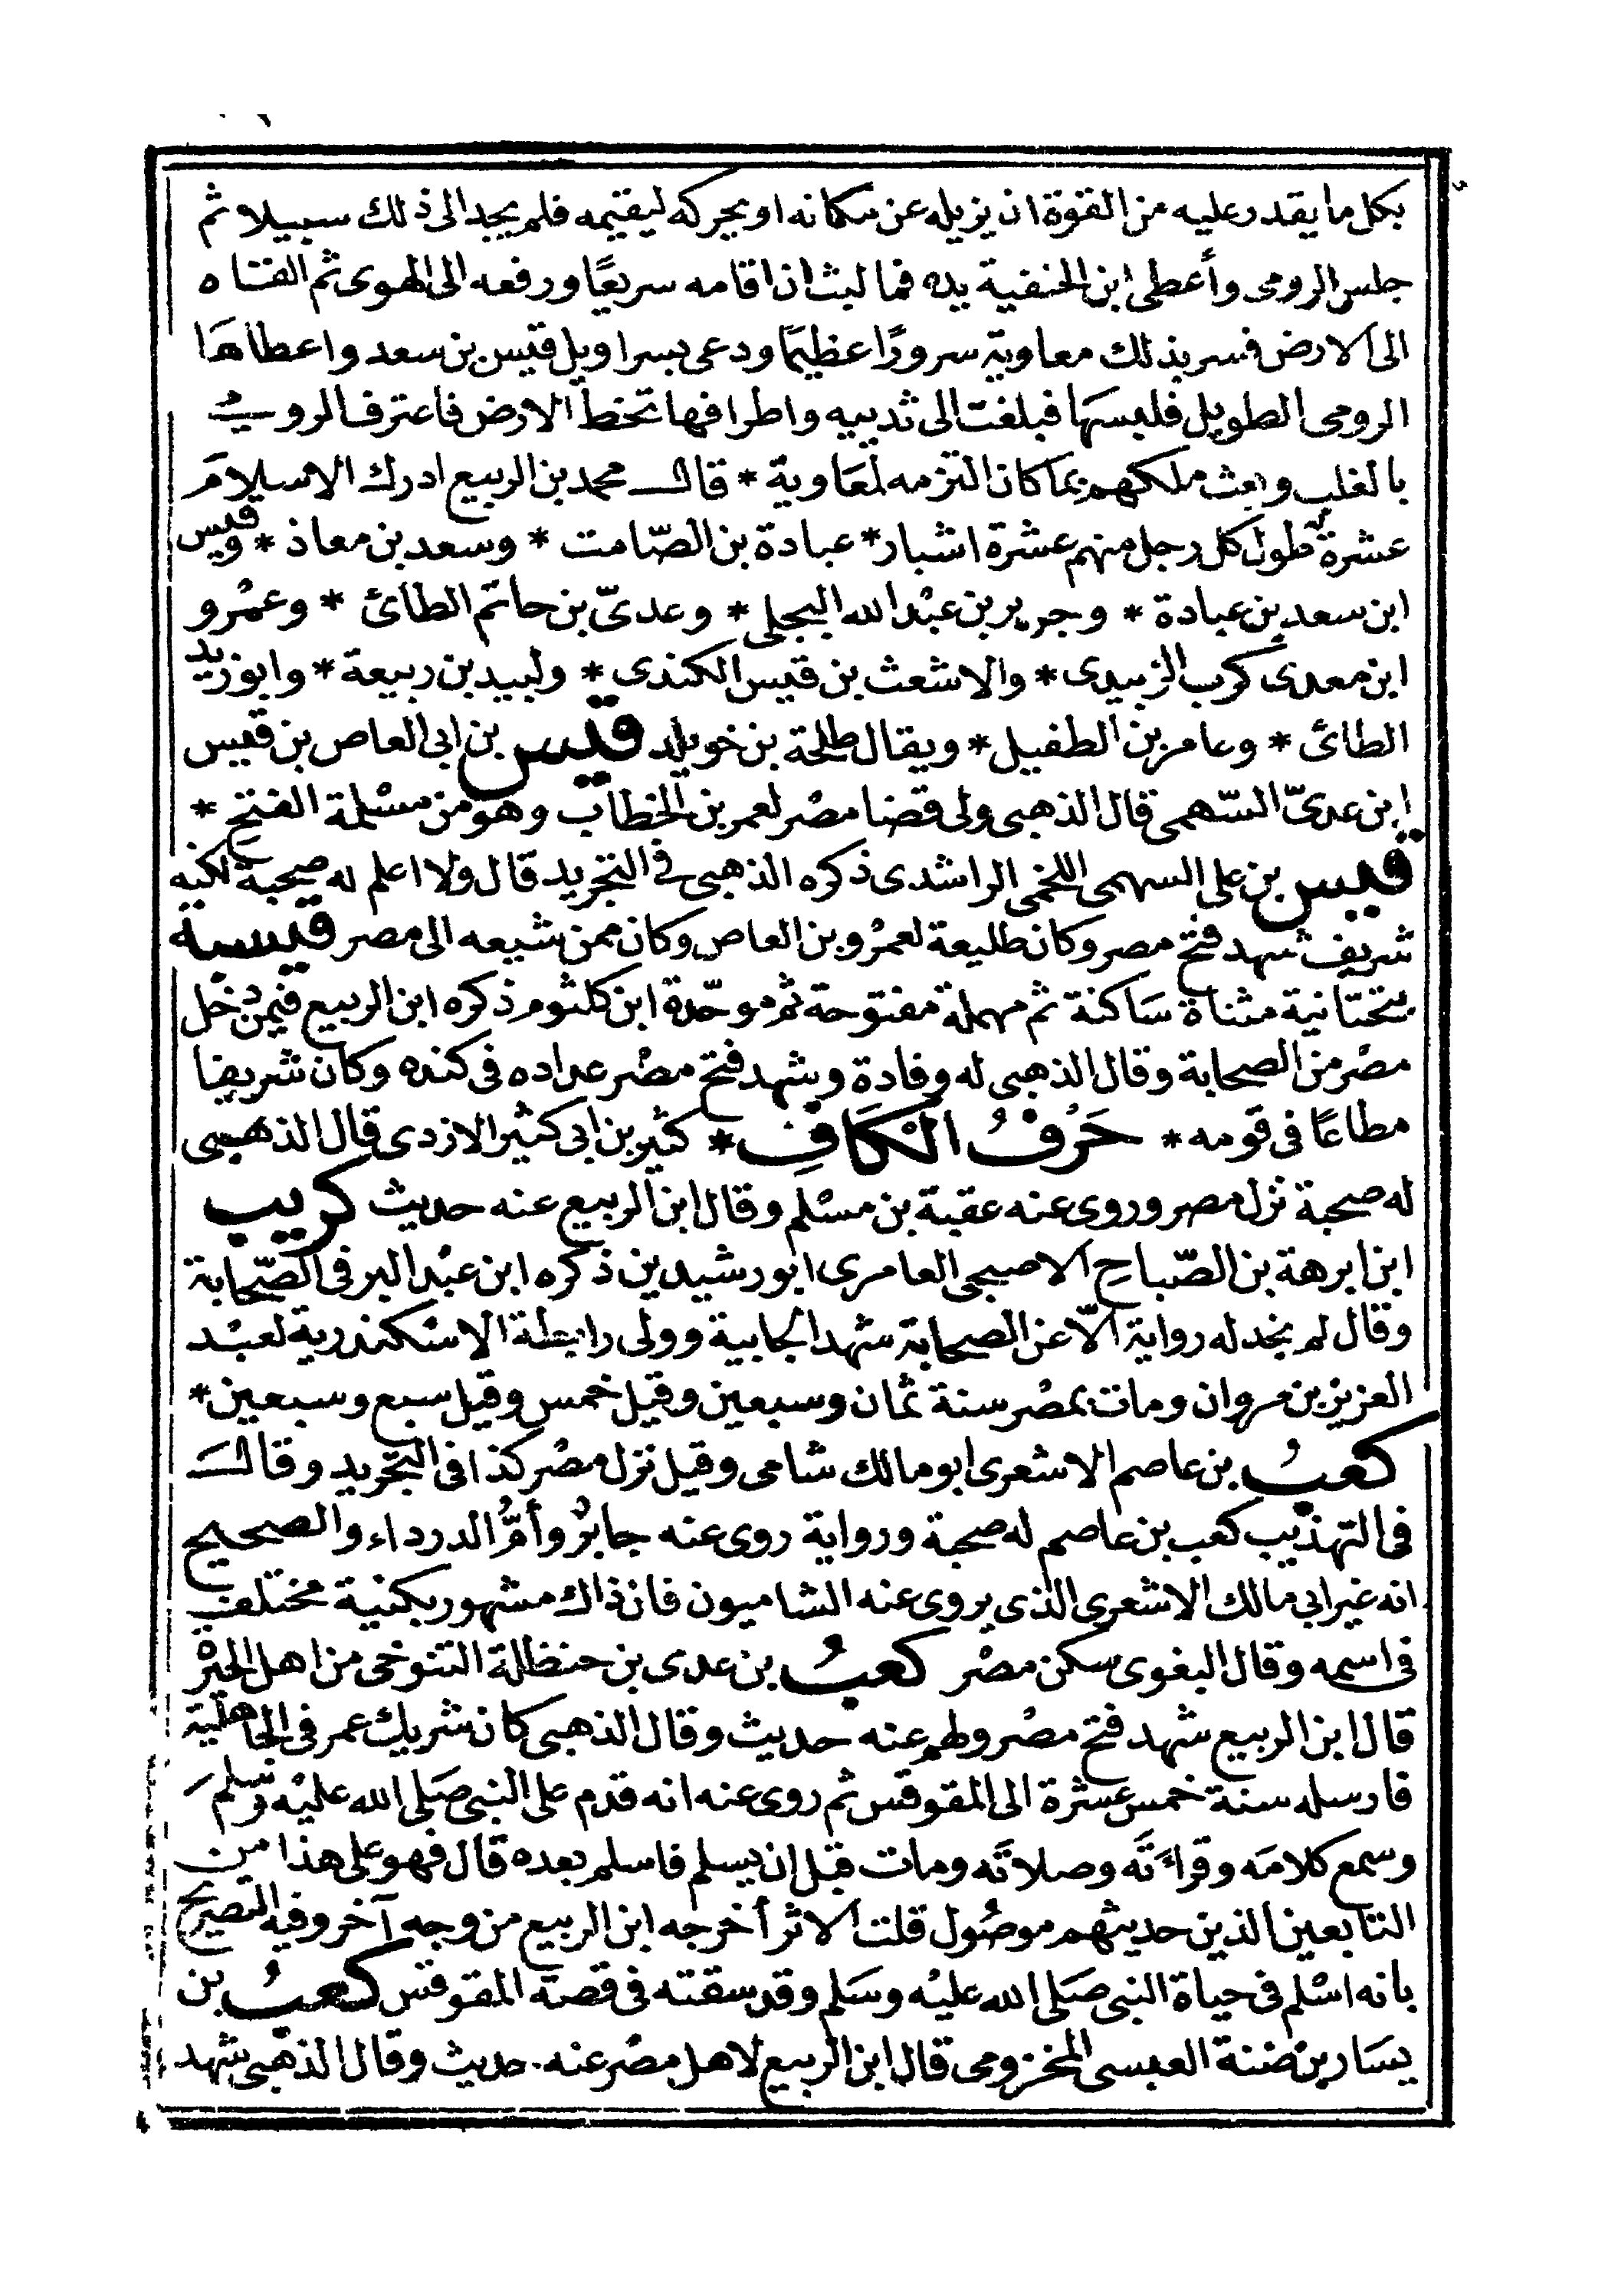 بكل ما يقدر عليه من القوة ان يزيله عن مكانه او يحركه ليقيمه فلم يجد الى ذلك سبيلا ثم
جلس الرومى وأعطى ابن الحنفية يده فما لبث ان اقامه سريعًا ورفعه الى الهوى ثم القاه
الى الارض فسر بذلك معاوية سرورًا عظيمًا ودعى بسراويل قيس بن سعد واعطاها
الرومى الطويل فلبسها فبلغت الى ثدييه واطرافها تخط الارض فاعترف الرومى
بالغلب وبعث ملكهم بما كان التزمه لمعاوية * قال محمد بن الربيع ادرك الاسلام
عشرة طول كل رجل منهم عشرة اشبار * عبادة بن الصّامت * وسعد بن معاذ * وقيس
ابن سعد بن عبادة * وجرير بن عبْد الله البجلى * وعدىّ بن حاتم الطائ * وعمْرو
ابن معدى كرب الزبيدى * والاشعث بن قيس الكندى * ولبيد بن ربيعة * وابو زبيد
الطائ * وعامر بن الطفيل * ويقال طلحة بن خويلد قيس بن ابى العاص بن قيس
ابن عدىّ السّهمى قال الذهبى ولى قضا مصْر لعمر بن الخطاب وهو من مسْلمة الفتح *
قيس بن على السهمى اللخمى الراشدى ذكره الذهبى فى التجريد قال ولا اعلم له صحبة لكنه
شريف شهد فتح مصر وكان طليعة لعمرْو بن العاص وكان ممن شيعه الى مصر قيسبة
بتحتانية مثناة سَاكنة ثم مهملة مفتوحة ثم موحّدة ابن كلثوم ذكره ابن الربيع فيمن دخل
مصْر من الصحابة وقال الذهبى له وفادة وشهد فتح مصْر عداده فى كنده وكان شريفا
مطاعًا فى قومه * حَرْفُ الْكَافِ * كثير بن ابى كثير الازدى قال الذهبى
له صحبة نزل مصر وروى عنه عقبة بن مسْلم وقال ابن الربيع عنه حديث كريب
ابن ابرهة بن الصّباح الاصبحى العامرى ابو رشيدين ذكره ابن عبْد البر فى الصّحابة
وقال لم نجد له رواية الّا عن الصحابة شهد الجابية وولى رابطة الاسْكندرية لعبْد
العزيز بن مروان ومات بمصْر سنة ثمان وسبعين وقيل خمس وقيل سبع وسبعين *
كعبُ بن عاصم الاشعرى ابو مالك شامى وقيل نزل مصْر كذا فى التجريد وقال
فى التهذيب كعب بن عاصم له صحبة ورواية روى عنه جابرٌ وأمُّ الدرداء والصحيح
انه غير ابى مالك الاشعرى الذى يروى عنه الشاميون فان ذاك مشهور بكنية مختلف
فى اسمه وقال البغوى سكن مصْر كعبُ بن عدى بن حنظلة التنوخى من اهل الحيرْ
قال ابن الربيع شهد فتح مصْر ولهم عنه حديث وقال الذهبى كان شريك عمر فى الجاهلية
فارسله سنة خمس عشرة الى المقوقس ثم روى عنه انه قدم على النبى صَلى الله عليْه وسَلم
وسمع كلامَه وقراءَتَه وصلاتَه ومات قبل ان يسلم فاسلم بعده قال فهو على هذا من
التابعين الذين حديثهم موصُول قلت الاثر أخرجه ابن الربيع من وجه آخر وفيه التصريح
بانه اسْلم فى حياة النبى صَلى الله عليْه وسَلم وقد سقته فى قصة المقوقس كعبُ بن
يسَار بن ضنة العبسى المخزومى قال ابن الربيع لاهل مصْر عنه حديث وقال الذهبى شهد